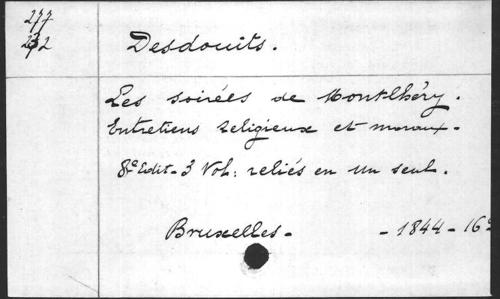 277
Desdouits.
Les soirées de Montlhéry.
Entretiens religieux et moraux.
8e Edit - 3 Vol: reliés en un seul.
Bruxelles - - 1844 - 16°